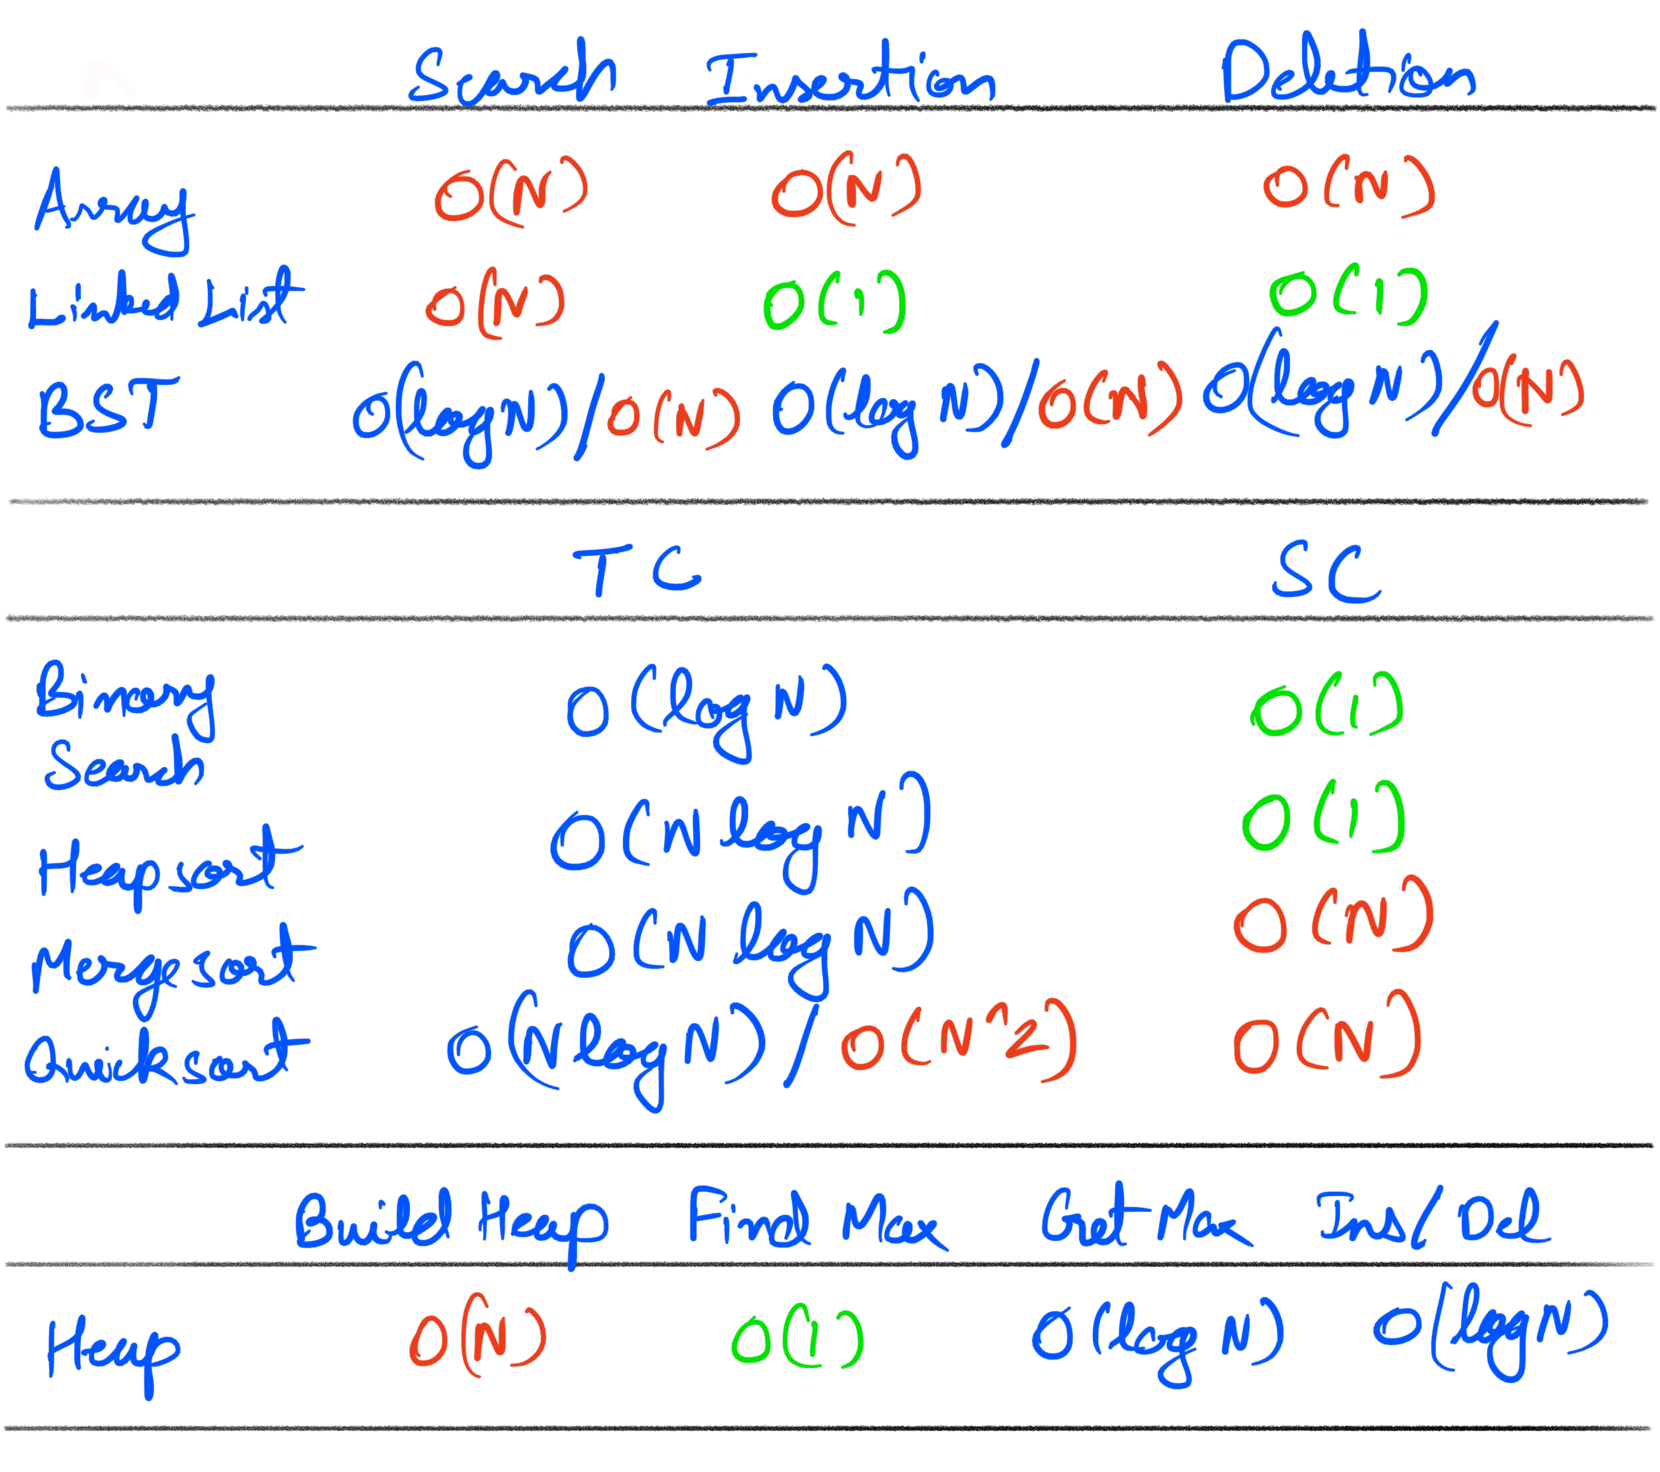 Search Insertion Deletion
Array O(N) O(N) O(N)
Linked List O(N) O(1) O(1)
BST O(log N)/O(N) O(log N)/O(N) O(log N)/O(N)
TC SC
Binary
Search O(log N) O(1)
Heapsort O(N log N) O(1)
Mergesort O(N log N) O(N)
Quicksort O(N log N) / O(N^2) O(N)
Build Heap Find Max Get Max Ins/Del
Heap O(N) O(1) O(log N) O(log N)